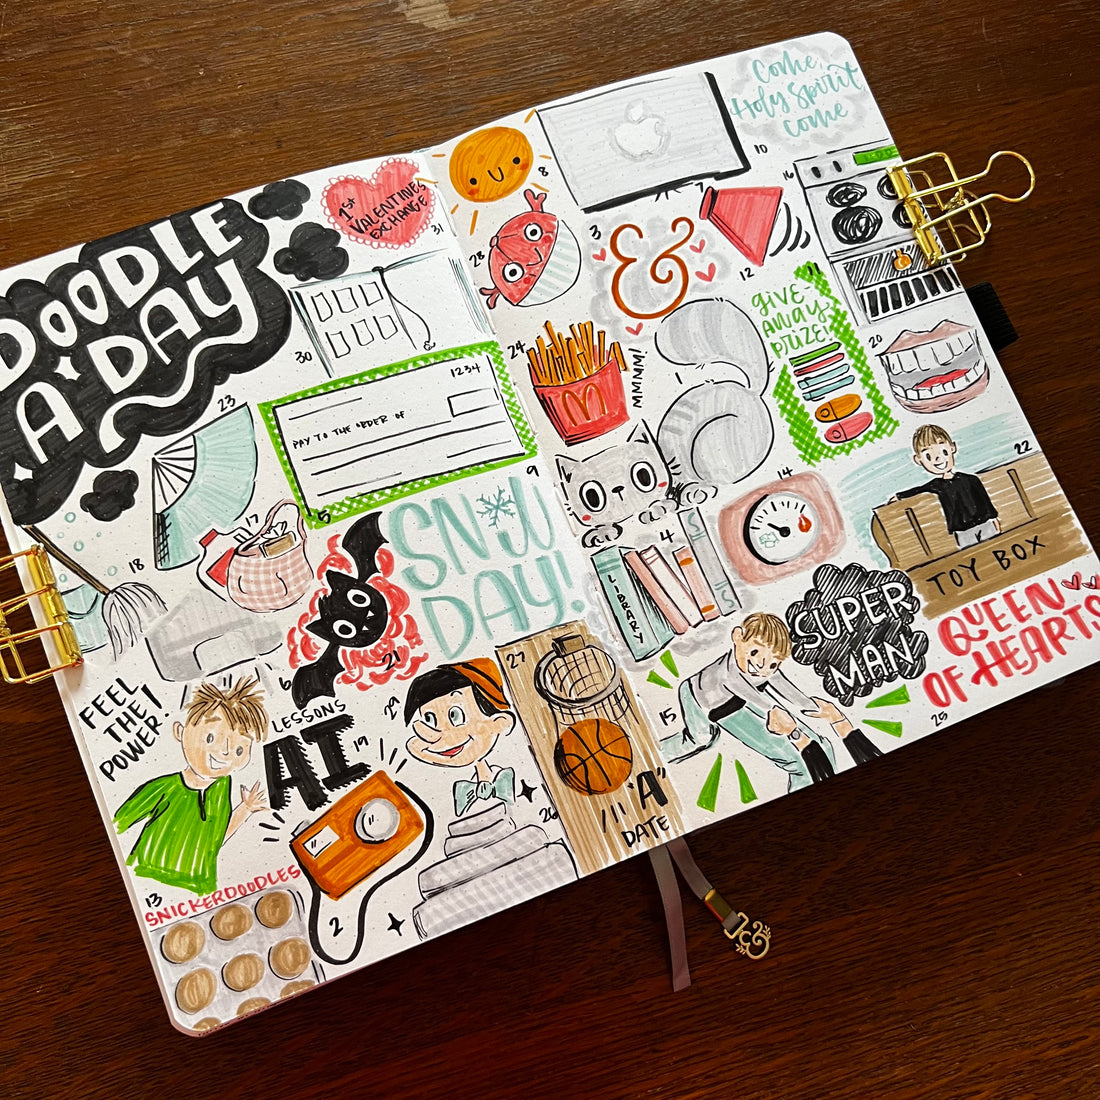 DOODLE
A DAY
1st
VALENTINES
EXCHANGE
31
30
23
1234
PAY TO THE ORDER OF
5
9
18
17
SNOW
DAY!
6
21
FEEL
THE
POWER!
11
LESSONS
AI
19
29
13
SNICKERDOODLES
2
26
27
"A"
DATE
8
28
3
&
7
10
Come,
Holy Spirit
come
16
12
11
GIVE
AWAY
PRIZE!
24
M
MMMM!
1
20
14
4
LIBRARY
S
S
22
TOY BOX
SUPER
MAN
15
QUEEN
OF HEARTS
25